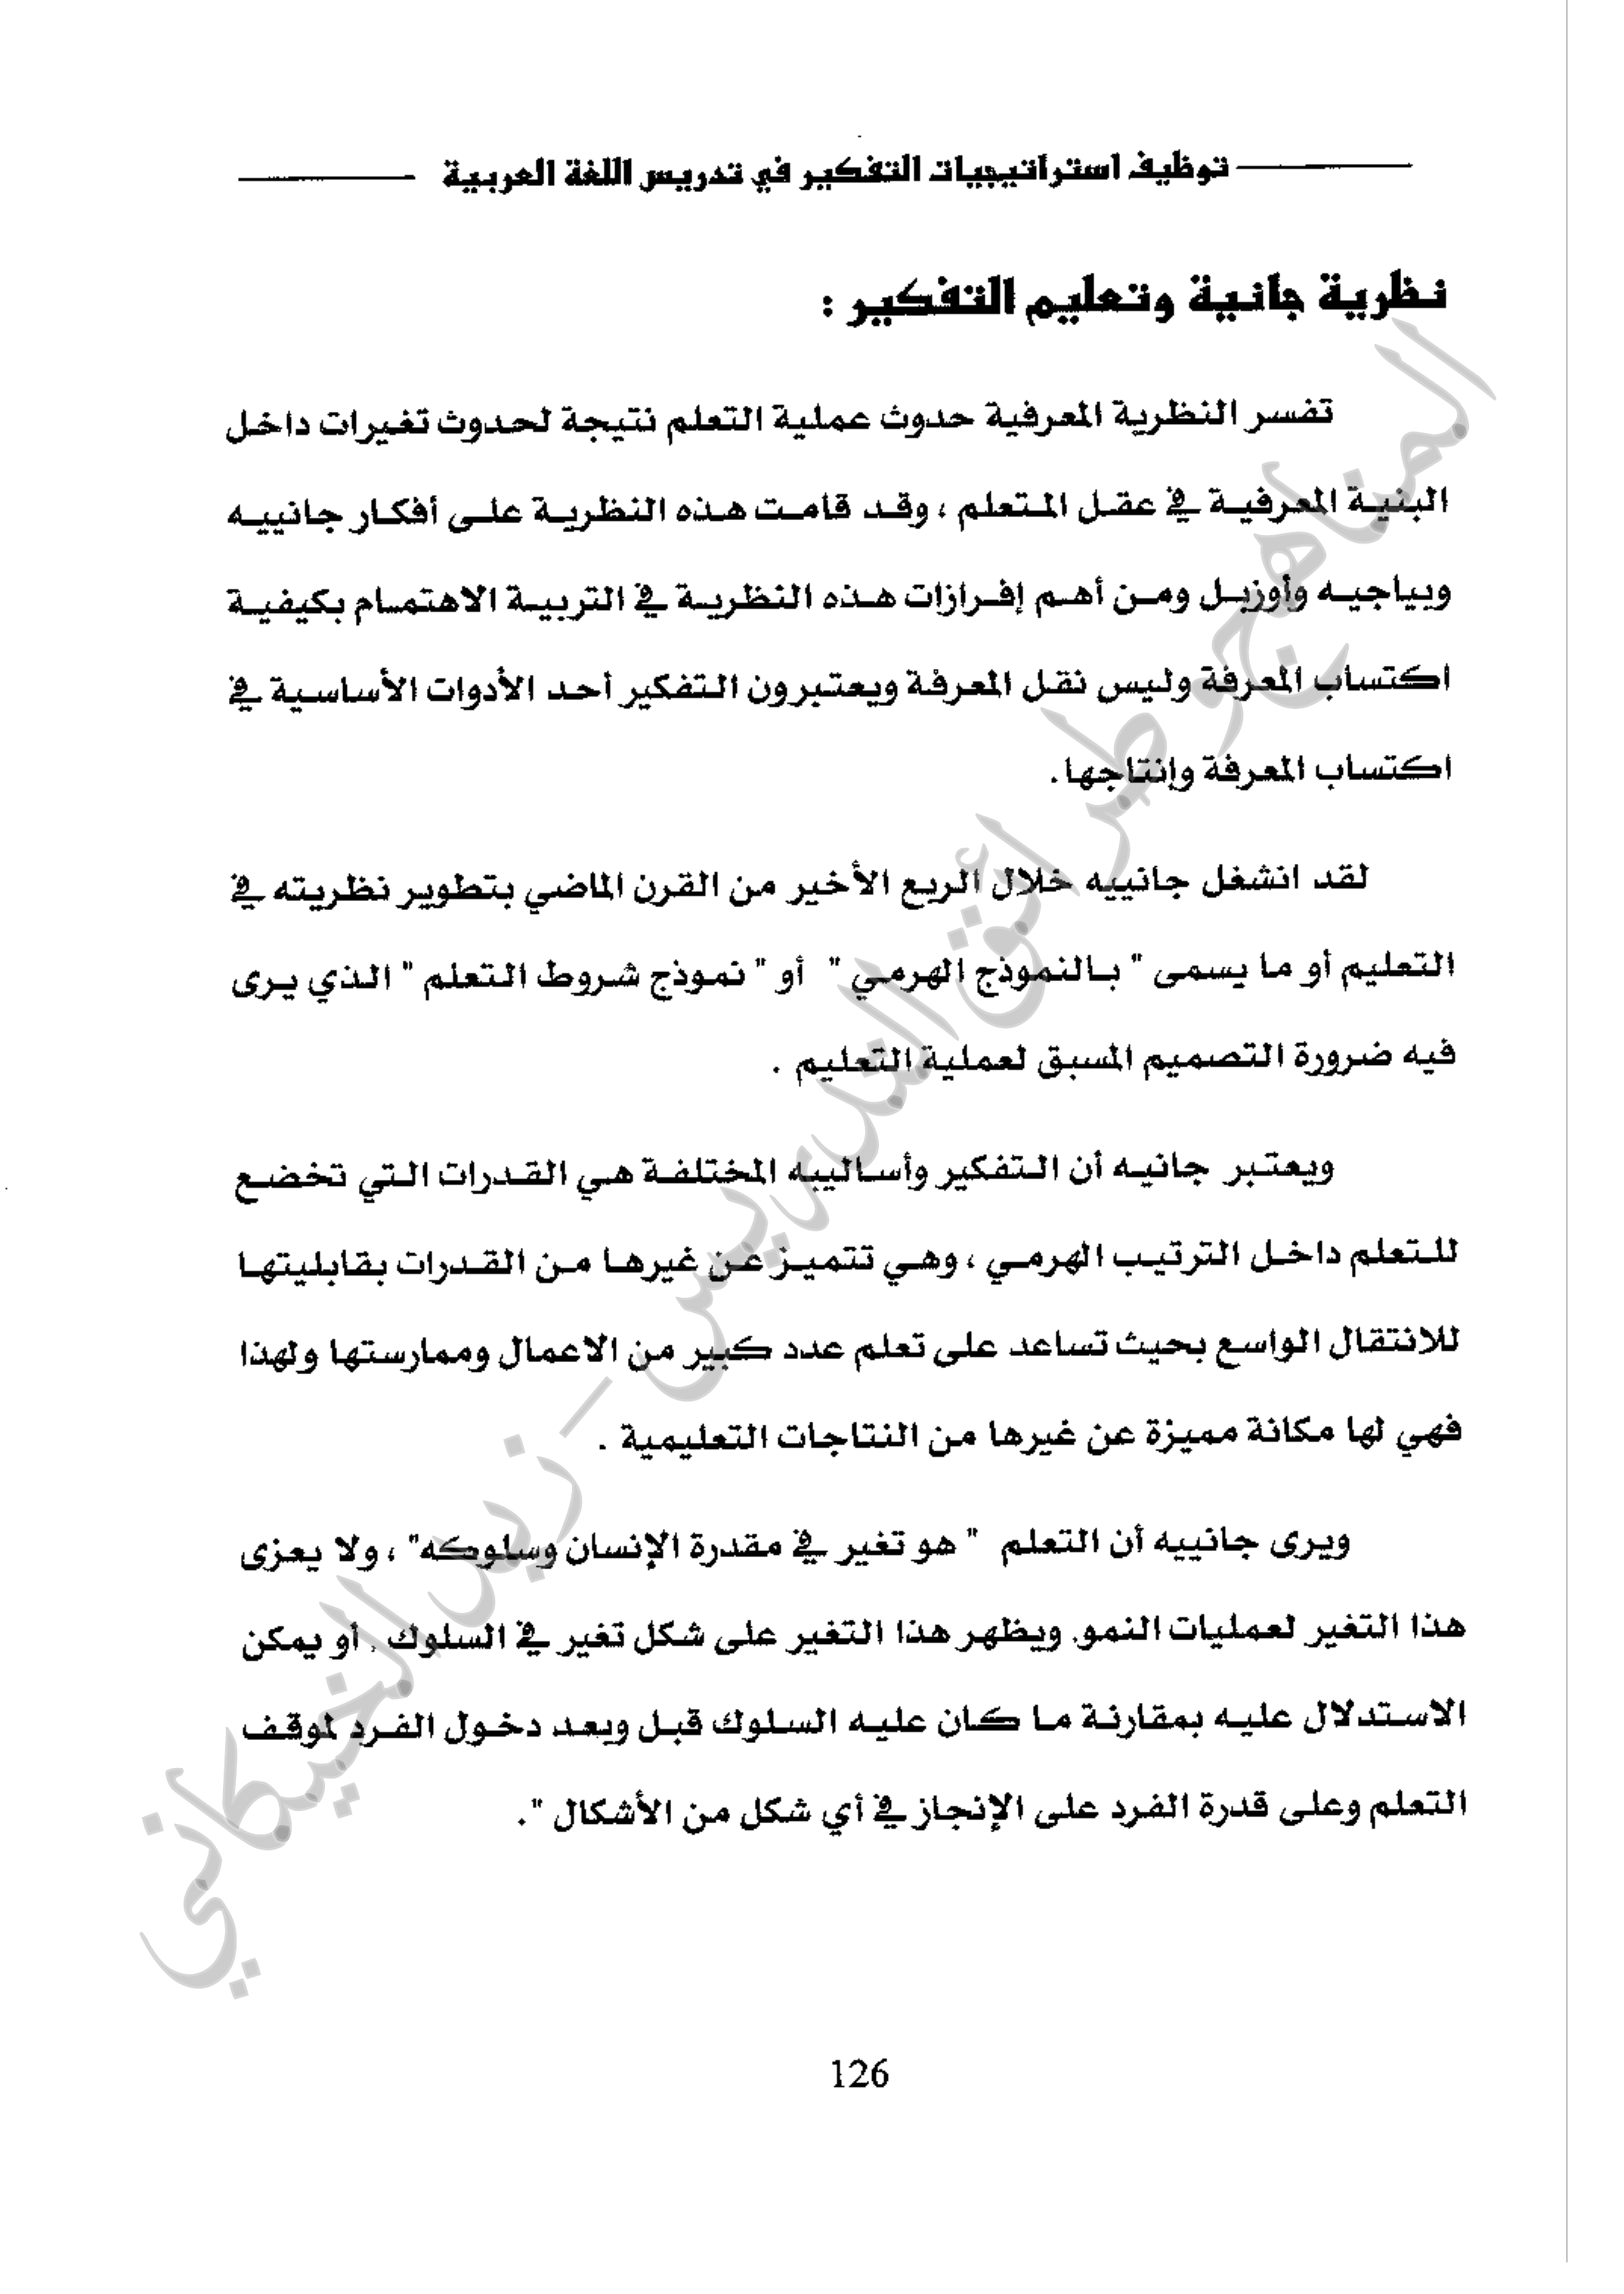 توظيف استراتيجيات التفكير في تدريس اللغة العربية
نظرية جانية وتعليم التفكير :
تفسر النظرية المعرفية حدوث عملية التعلم نتيجة لحدوث تغيرات داخل
البنية المعرفية في عقل المتعلم ، وقد قامت هذه النظرية على أفكار جانييه
وبياجيه وأوزبل ومن أهم إفرازات هذه النظرية في التربية الاهتمام بكيفية
اكتساب المعرفة وليس نقل المعرفة ويعتبرون التفكير أحد الأدوات الأساسية في
اكتساب المعرفة وإنتاجها.
لقد انشغل جانييه خلال الربع الأخير من القرن الماضي بتطوير نظريته في
التعليم أو ما يسمى " بالنموذج الهرمي " أو " نموذج شروط التعلم " الذي يرى
فيه ضرورة التصميم المسبق لعملية التعليم .
ويعتبر جانيه أن التفكير وأساليبه المختلفة هي القدرات التي تخضع
للتعلم داخل الترتيب الهرمي ، وهي تتميز عن غيرها من القدرات بقابليتها
للانتقال الواسع بحيث تساعد على تعلم عدد كبير من الاعمال وممارستها ولهذا
فهي لها مكانة مميزة عن غيرها من النتاجات التعليمية .
ويرى جانييه أن التعلم " هو تغير في مقدرة الإنسان وسلوكه" ، ولا يعزى
هذا التغير لعمليات النمو. ويظهر هذا التغير على شكل تغير في السلوك . أو يمكن
الاستدلال عليه بمقارنة ما كان عليه السلوك قبل وبعد دخول الفرد لموقف
التعلم وعلى قدرة الفرد على الإنجاز في أي شكل من الأشكال ".
المناهج وطرائق التدريس - زيد الخيكاني
126